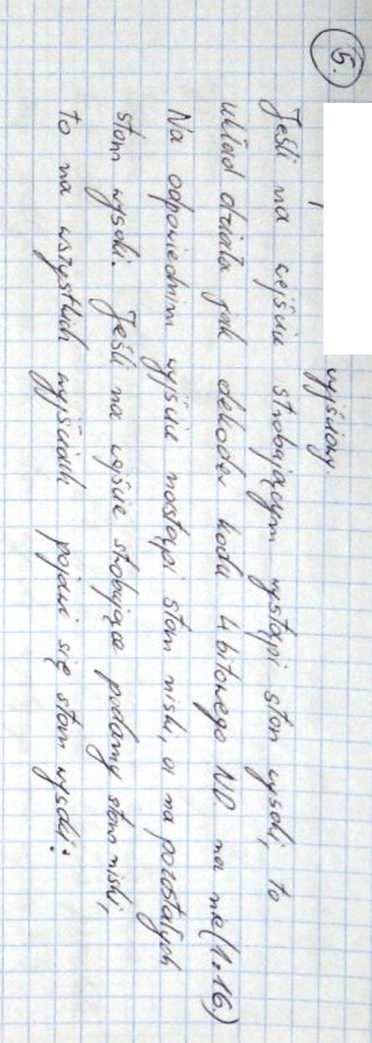 5.
wyjściowy.
Jeśli na wejściu strobującym wystąpi stan wysoki, to
układ działa jak dekoder kodu 4 bitowego NB na (1z16.)
Na odpowiednim wyjściu nastąpi stan niski, a na pozostałych
stan wysoki. Jeśli na wejście strobujące podamy stan niski,
to na wszystkich wyjściach pojawi się stan wysoki.